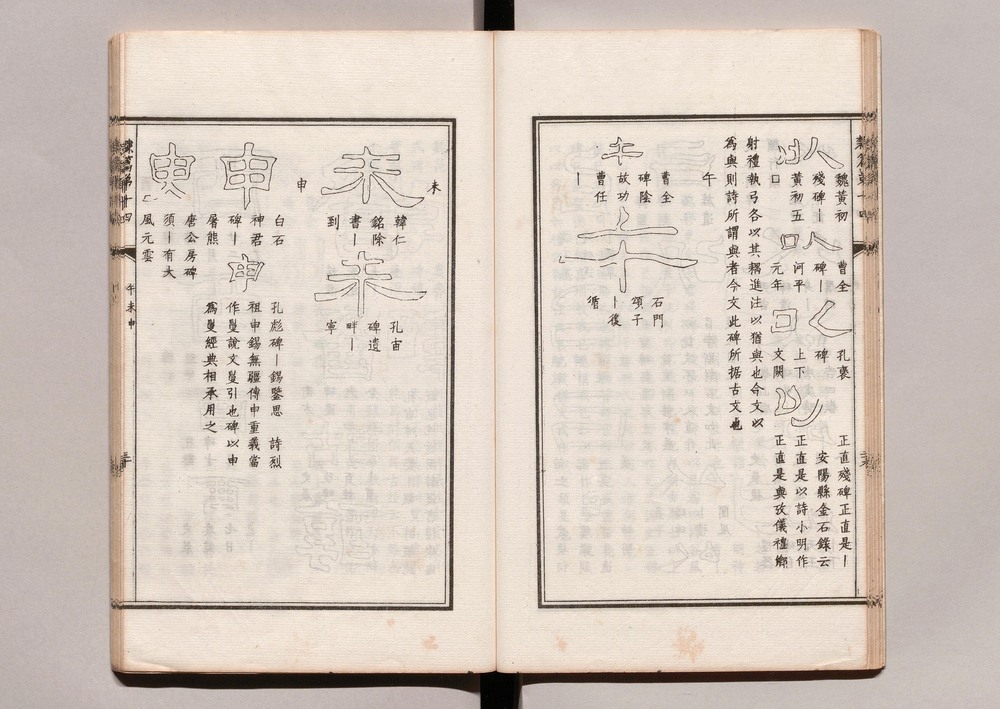 魏黃初
殘碑丨
黃初五
曹全
碑丨
河平
元年
孔褒
碑
上下
文闕
正直殘碑正直是丨
安陽縣金石錄云
正直是以詩小明作
正直是與攷儀禮鄉
射禮執弓各以其耦進注以猶與也今文以
爲與則詩所謂與者今文此碑所据古文也
午
午
曹全
碑陰
故功
曹任
丨
午
石門
頌子
丨復
循
未
未
韓仁
銘除
書丨
到
未
孔宙
碑遺
畔丨
寧
申
申
白石
神君
碑丨
屠熊
申
孔彪碑丨錫鑒思 詩烈
祖申錫無疆傳申重義當
作𢑚說文𢑚引也碑以申
爲𢑚經典相承用之
唐公房碑
須丨有大
風元雲
隸篇第十四
午未申